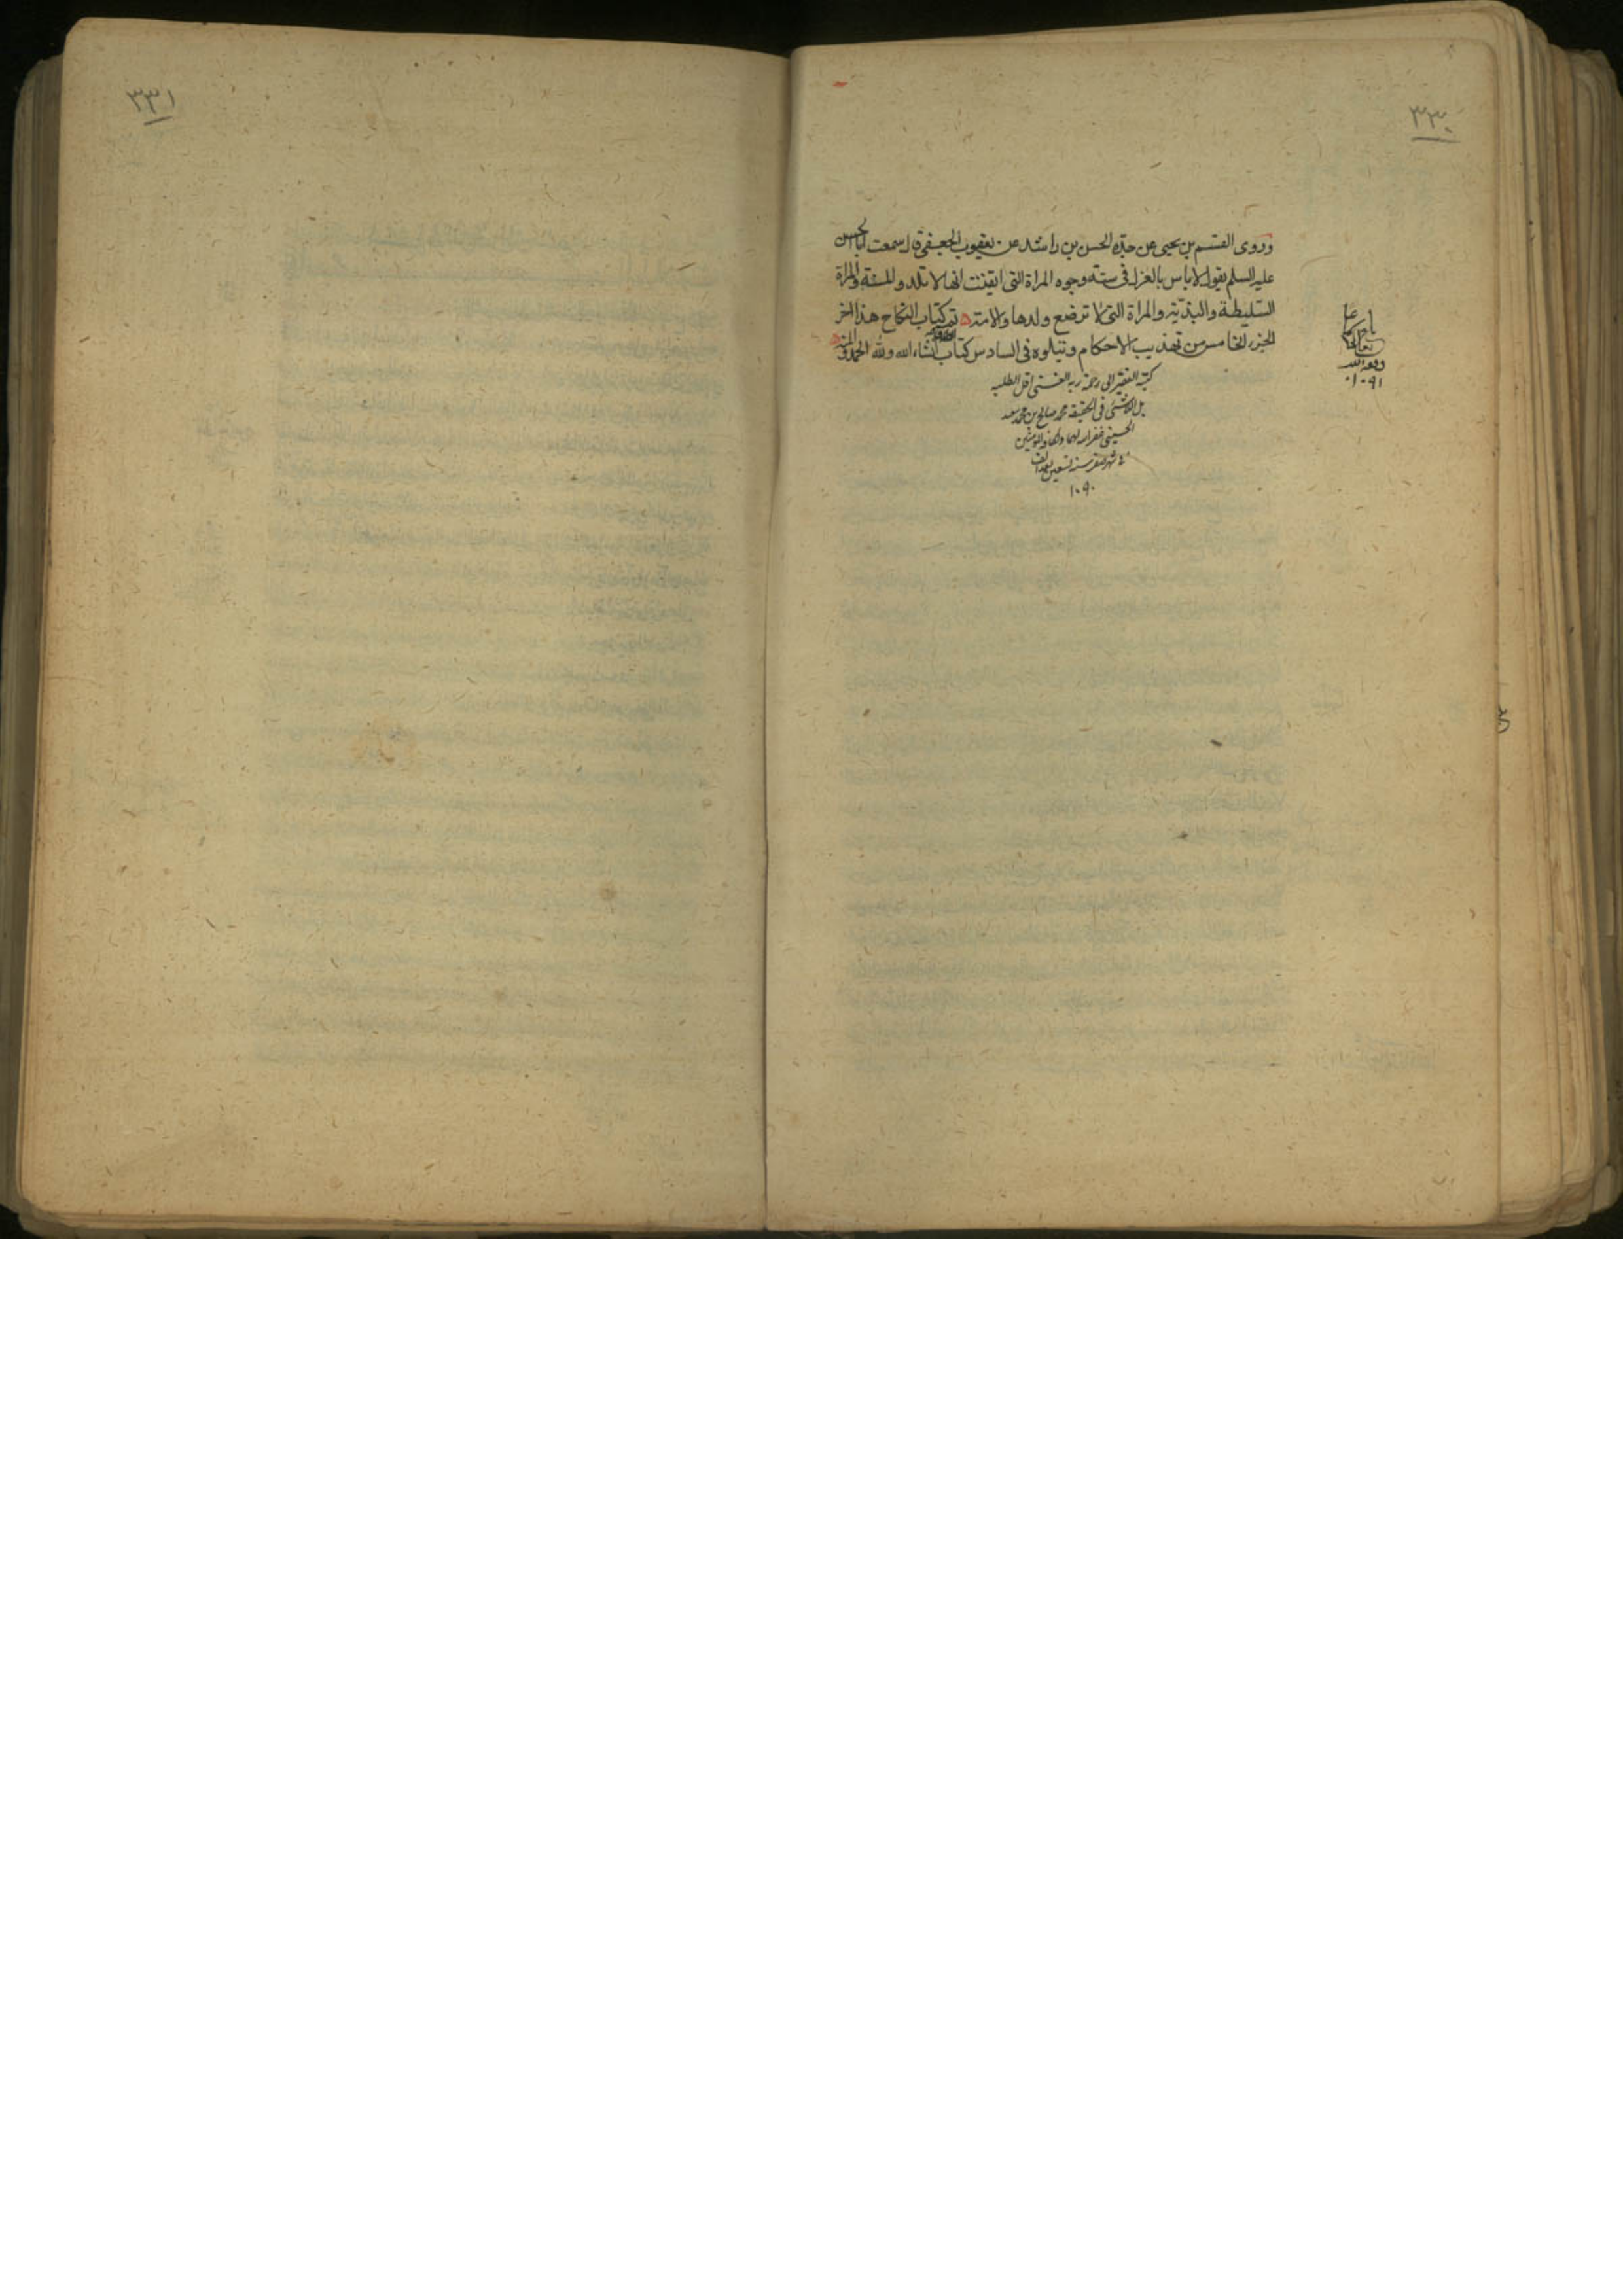 ٣٣٠
وروى القسم بن يحيى عن جده الحسن بن راشد عن يعقوب الجعفي قال سمعت ابا الحسن
عليه السلم يقول لا باس بالعزل في سته وجوه المراة التي ايقنت انها لا تلد والمسنة والمراة
السليطة والبذية والمراة التي لا ترضع ولدها والامة تم كتاب النكاح هذا اخر
الجزء الخامس من تهذيب الاحكام ونتلوه في السادس كتاب انشاء الله ولله الحمد والمنه
كتبه الفقير الى رحمة ربه الغني اقل الطلبه
بل اللاشئ في الحقيقه محمد صالح بن محمد سعيد
الحسيني غفر الله لهما ولكافة المؤمنين
شهر صفر سنه تسعين بعد الف
١٠٩٠
وفقه الله
١٠٩١
٣٣١